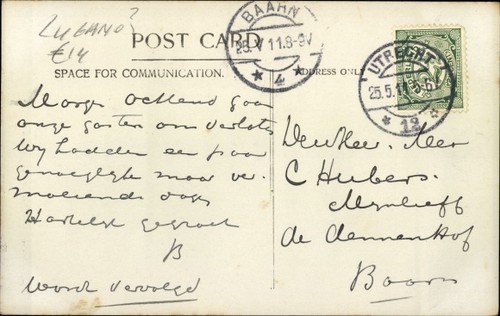 LUGANO?
€14
POST CARD
SPACE FOR COMMUNICATION.
ADDRESS ONLY
BAARN
25.V 11.8-9V
* 4 *
UTRECHT
25.5.11
* 12 *
Morgen ochtend gaan
onze gasten ons verlaten
Wy hadden een paar
genoegelijke maar ver-
moeiende dagen
Hartelijk gegroet
B
Wordt vervolgd
C Hubers.
de Dennenhof
Baarn